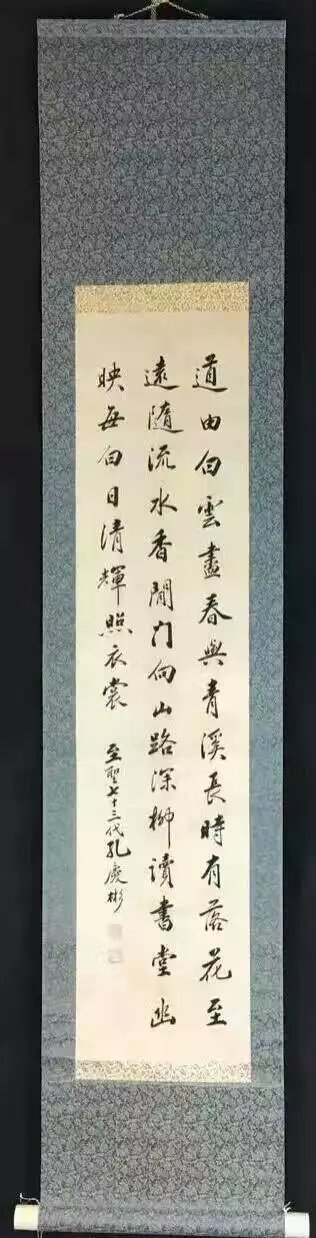 道由白雲盡春與青溪長時有落花至
遠隨流水香閒门向山路深柳讀書堂幽
映每白日清輝照衣裳
至聖七十三代孔慶彬